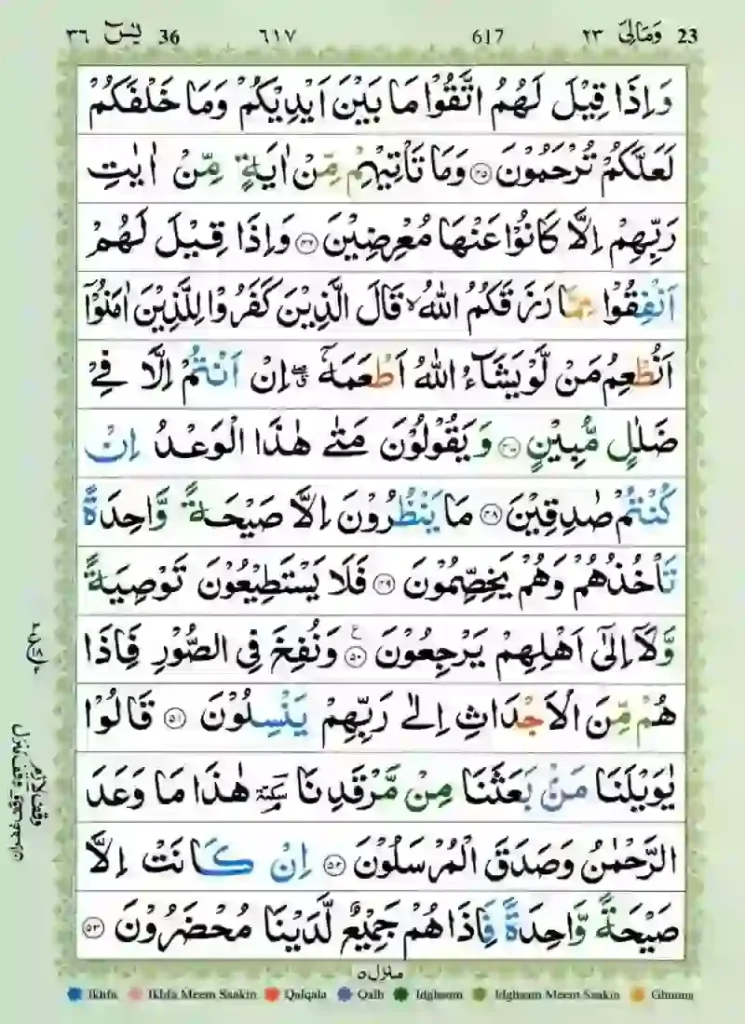 يٰسٓ ٣٦ 36 ٦١٧ 617 وَمَالِىَ ٢٣ 23
وَاِذَا قِيْلَ لَهُمُ اتَّقُوْا مَا بَيْنَ اَيْدِيْكُمْ وَمَا خَلْفَكُمْ
لَعَلَّكُمْ تُرْحَمُوْنَ ﴿٤٥﴾ وَمَا تَاْتِيْهِمْ مِّنْ اٰيَةٍ مِّنْ اٰيٰتِ
رَبِّهِمْ اِلَّا كَانُوْا عَنْهَا مُعْرِضِيْنَ ﴿٤٦﴾ وَاِذَا قِيْلَ لَهُمْ
اَنْفِقُوْا مِمَّا رَزَقَكُمُ اللّٰهُ ۙ قَالَ الَّذِيْنَ كَفَرُوْا لِلَّذِيْنَ اٰمَنُوْۤا
اَنُطْعِمُ مَنْ لَّوْ يَشَآءُ اللّٰهُ اَطْعَمَهٗۤ ۖ ق اِنْ اَنْتُمْ اِلَّا فِىْ
ضَلٰلٍ مُّبِيْنٍ ﴿٤٧﴾ وَيَقُوْلُوْنَ مَتٰى هٰذَا الْوَعْدُ اِنْ
كُنْتُمْ صٰدِقِيْنَ ﴿٤٨﴾ مَا يَنْظُرُوْنَ اِلَّا صَيْحَةً وَّاحِدَةً
تَاْخُذُهُمْ وَهُمْ يَخِصِّمُوْنَ ﴿٤٩﴾ فَلَا يَسْتَطِيْعُوْنَ تَوْصِيَةً
وَّلَاۤ اِلٰٓى اَهْلِهِمْ يَرْجِعُوْنَ ﴿٥٠﴾ ع وَنُفِخَ فِى الصُّوْرِ فَاِذَا
هُمْ مِّنَ الْاَجْدَاثِ اِلٰى رَبِّهِمْ يَنْسِلُوْنَ ﴿٥١﴾ قَالُوْا
يٰوَيْلَنَا مَنْۢ بَعَثَنَا مِنْ مَّرْقَدِنَا ۜ هٰذَا مَا وَعَدَ
الرَّحْمٰنُ وَصَدَقَ الْمُرْسَلُوْنَ ﴿٥٢﴾ اِنْ كَانَتْ اِلَّا
صَيْحَةً وَّاحِدَةً فَاِذَا هُمْ جَمِيْعٌ لَّدَيْنَا مُحْضَرُوْنَ ﴿٥٣﴾
منزل ٥
Ikhfa Ikhfa Meem Saakin Qalqala Qalb Idghaam Idghaam Meem Saakin Ghunna